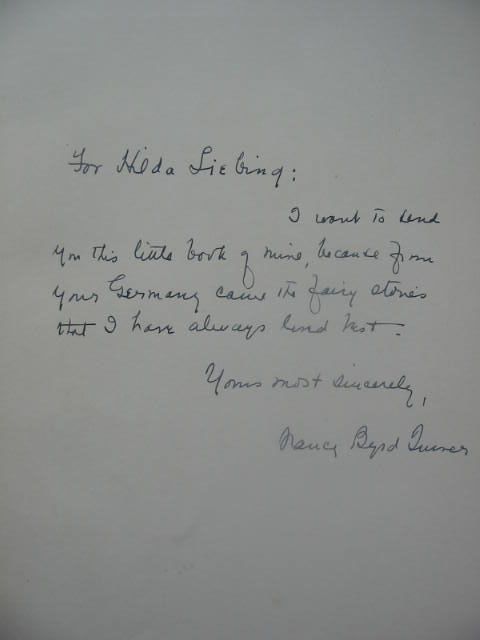 For Hilda Liebing:
I want to send
you this little book of mine, because from
your Germany came the fairy stories
that I have always loved best.
Yours most sincerely,
Nancy Byrd Turner